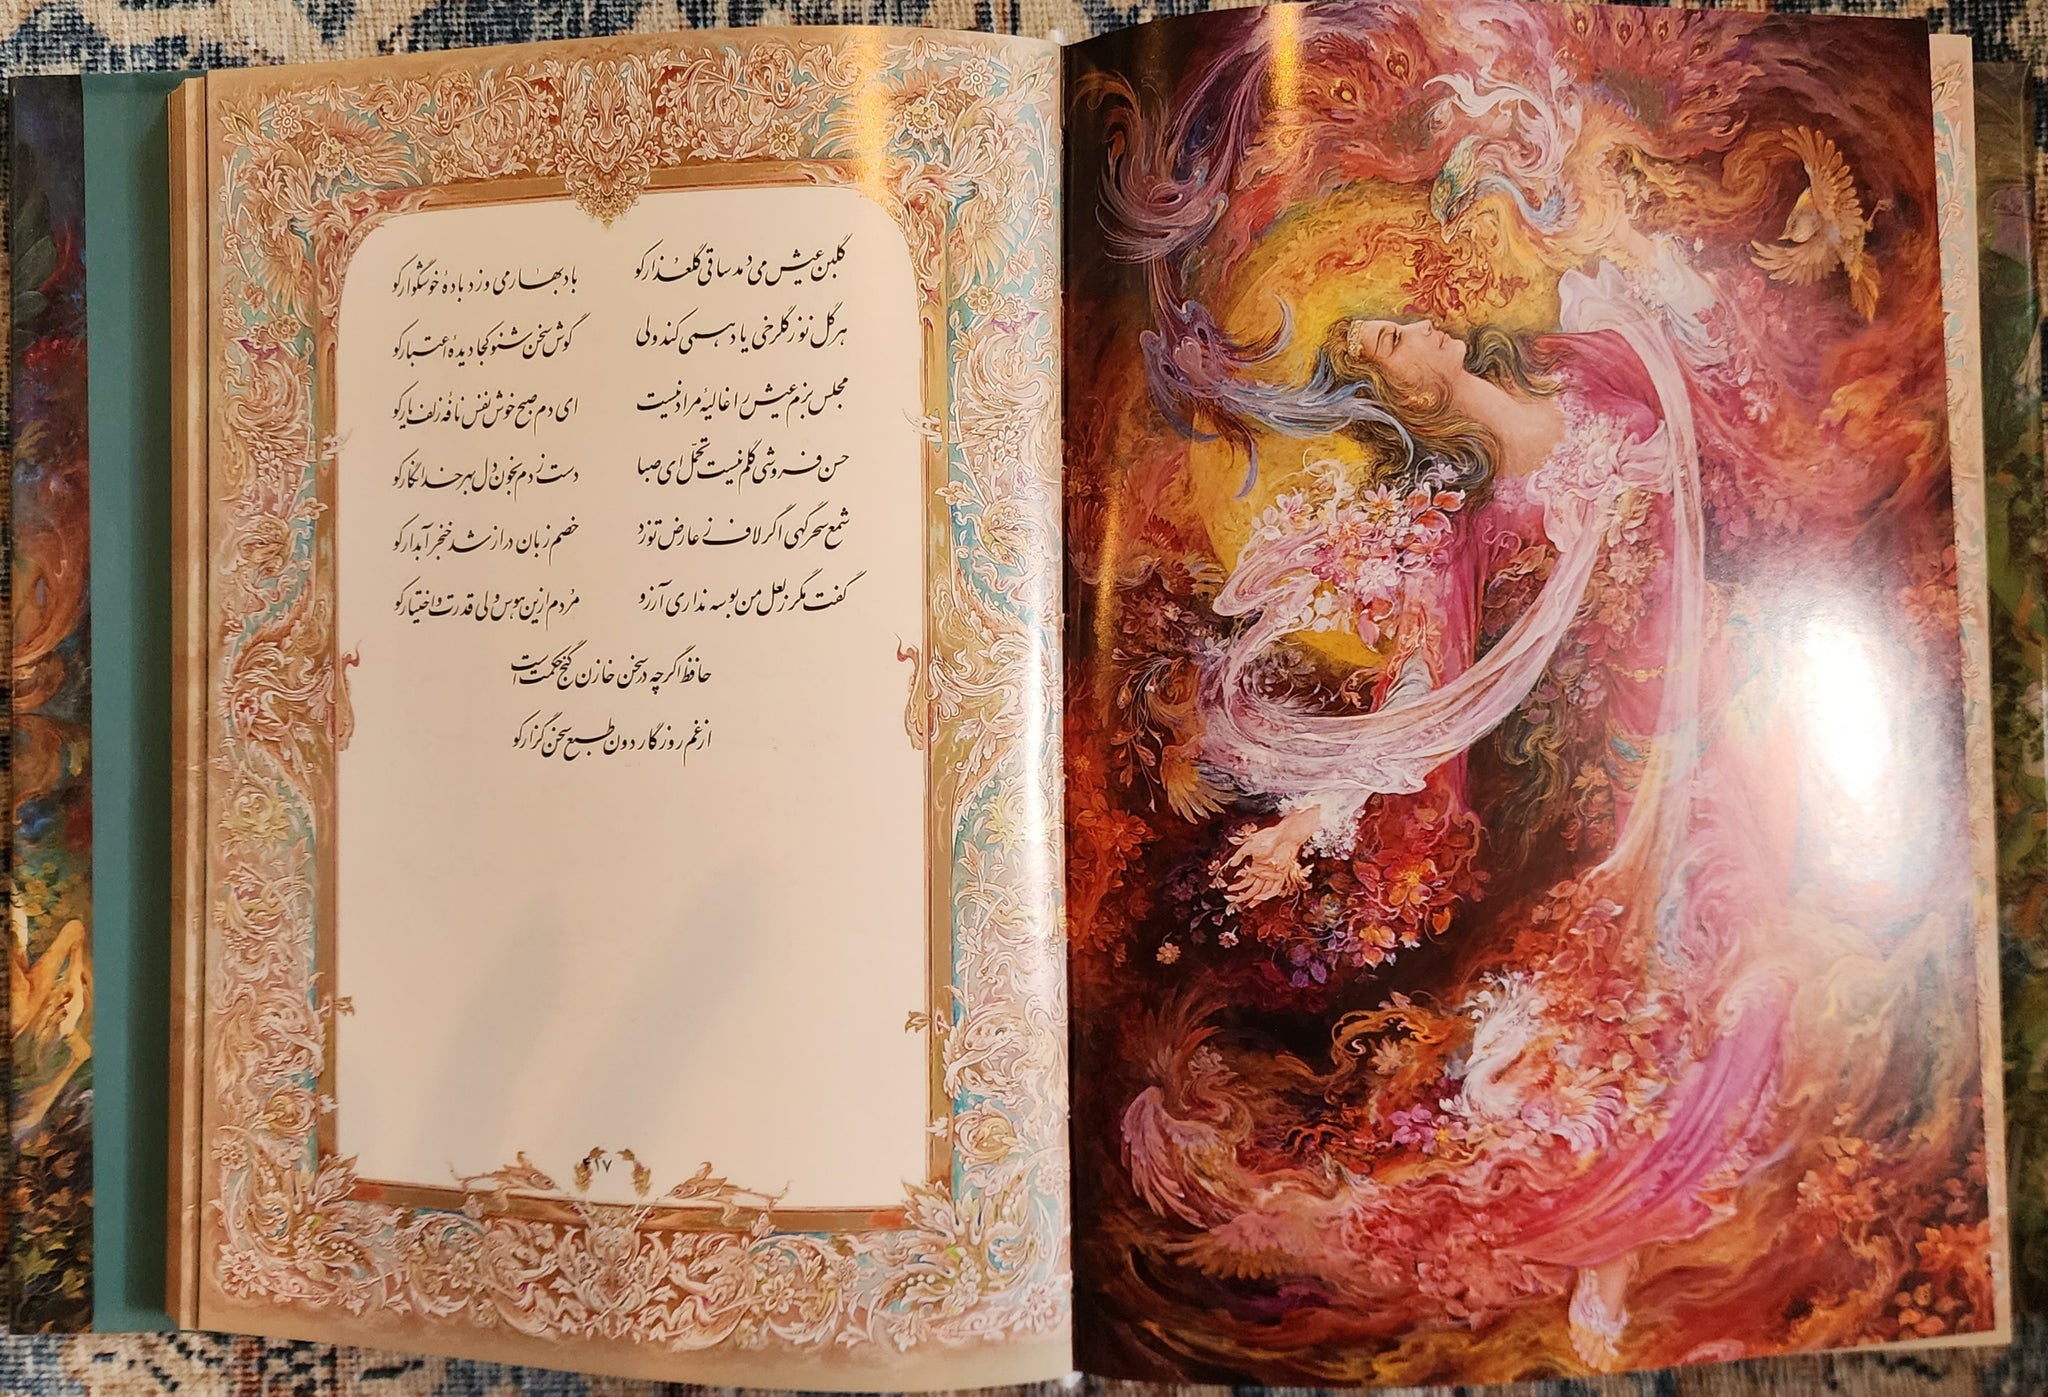 گلبن عیش می دمد ساقی گلعذار کو باد بهار می وزد بادهٔ خوشگوار کو
هر گل نو ز گلرخی یاد همی کند ولی گوش سخن شنو کجا دیدهٔ اعتبار کو
مجلس بزم عیش را غالیهٔ مراد نیست ای دم صبح خوش نفس نافهٔ زلف یار کو
حسن فروشی گلم نیست تحمّل ای صبا دست زدم بخون دل بهر خدا نگار کو
شمع سحرگهی اگر لاف ز عارض تو زد خصم زبان دراز شد خنجر آبدار کو
گفت مگر ز لعل من بوسه نداری آرزو مُردم ازین هوس ولی قدرت و اختیار کو
حافظ اگرچه در سخن خازن گنج حکمت است
از غم روزگار دون طبع سخن گزار کو
۴۱۷